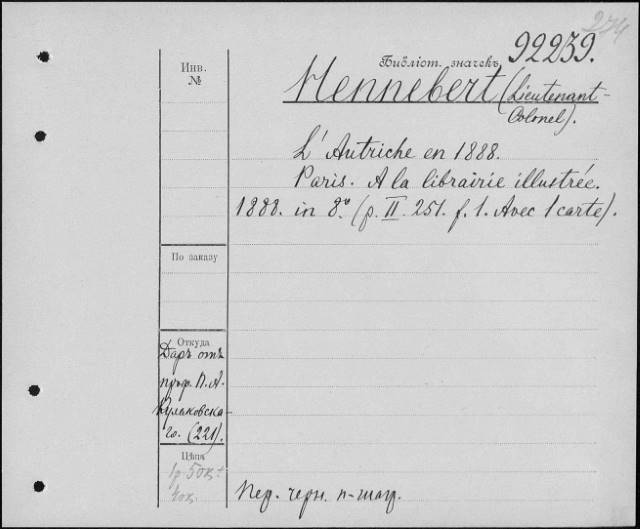 274
Библіот. значекъ 92239.
Инв.
№
Hennebert (Lieutenant-
Colonel).
L'Autriche en 1888.
Paris. A la librairie illustrée.
1888. in 8º (p. II. 251. f. 1. Avec 1 carte).
По заказу
Откуда
Даръ отъ
проф. П. А.
Кулаковска-
го. (221).
Цѣна
1р. 50к. +
40к.
Пер. черн. п-шагр.